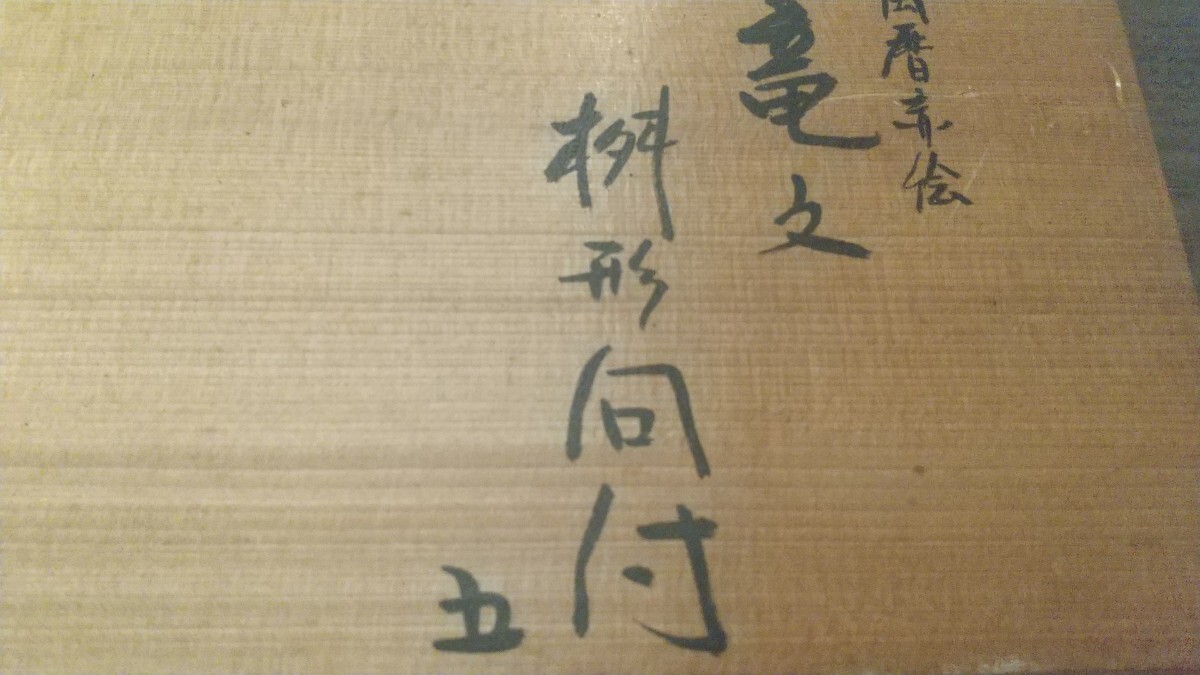 暦赤絵
竜文
桝形向付
五